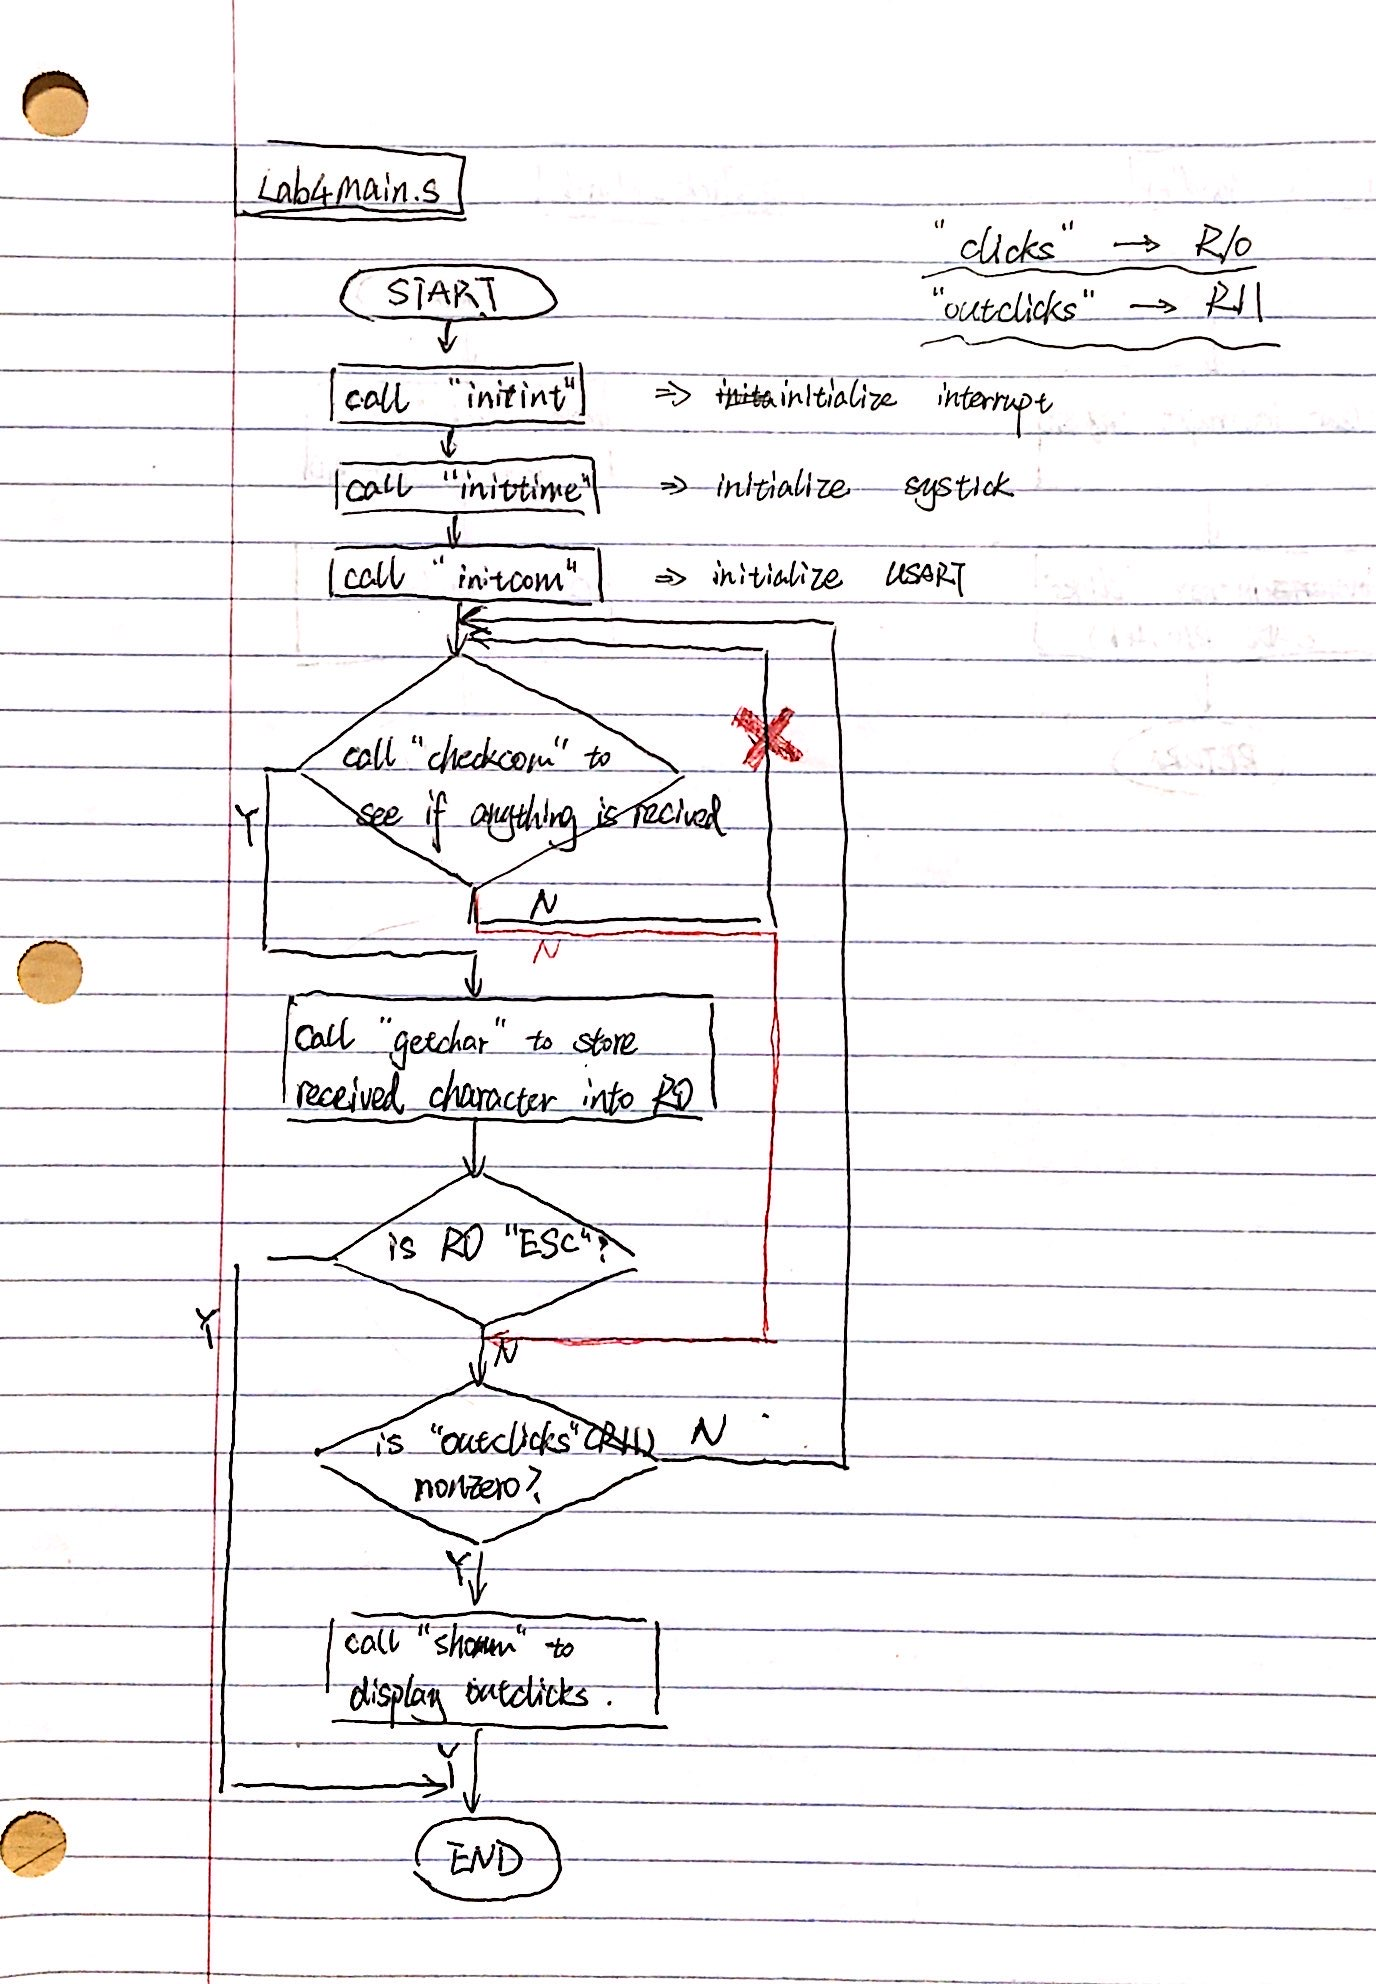 Lab4main.s
"clicks" → R10
"outclicks" → R11
START
call "initint" ⇒ initialize interrupt
call "inittime" ⇒ initialize systick
call "initcom" ⇒ initialize USART
call "checkcom" to
see if anything is recived
Y
N
N
Call "getchar" to store
received character into R0
is R0 "ESC"?
Y
N
is "outclicks" (R11) N
nonzero?
Y
call to
display outclicks.
Y
END